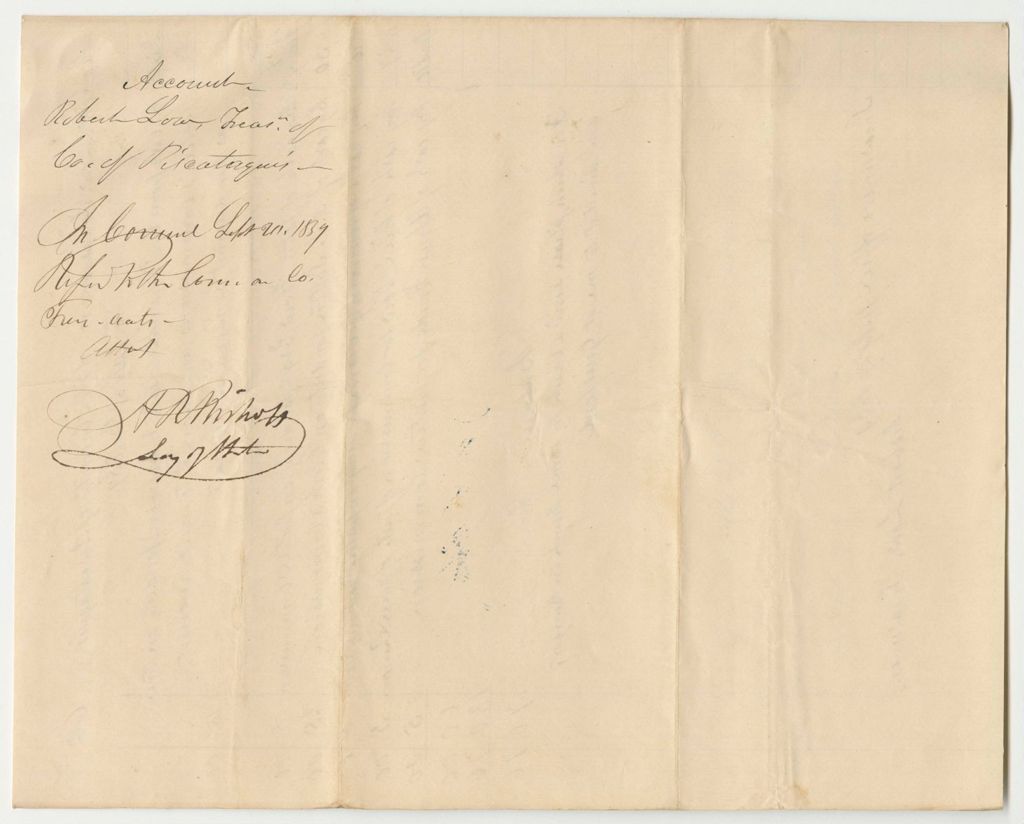 Account
Robert Low, Treasr. of
Co. of Piscataquis
In Council Sept 20. 1839
Refer'd to the Com. on Co.
Tren. accts
Attest
A R Nichols
Secy of State